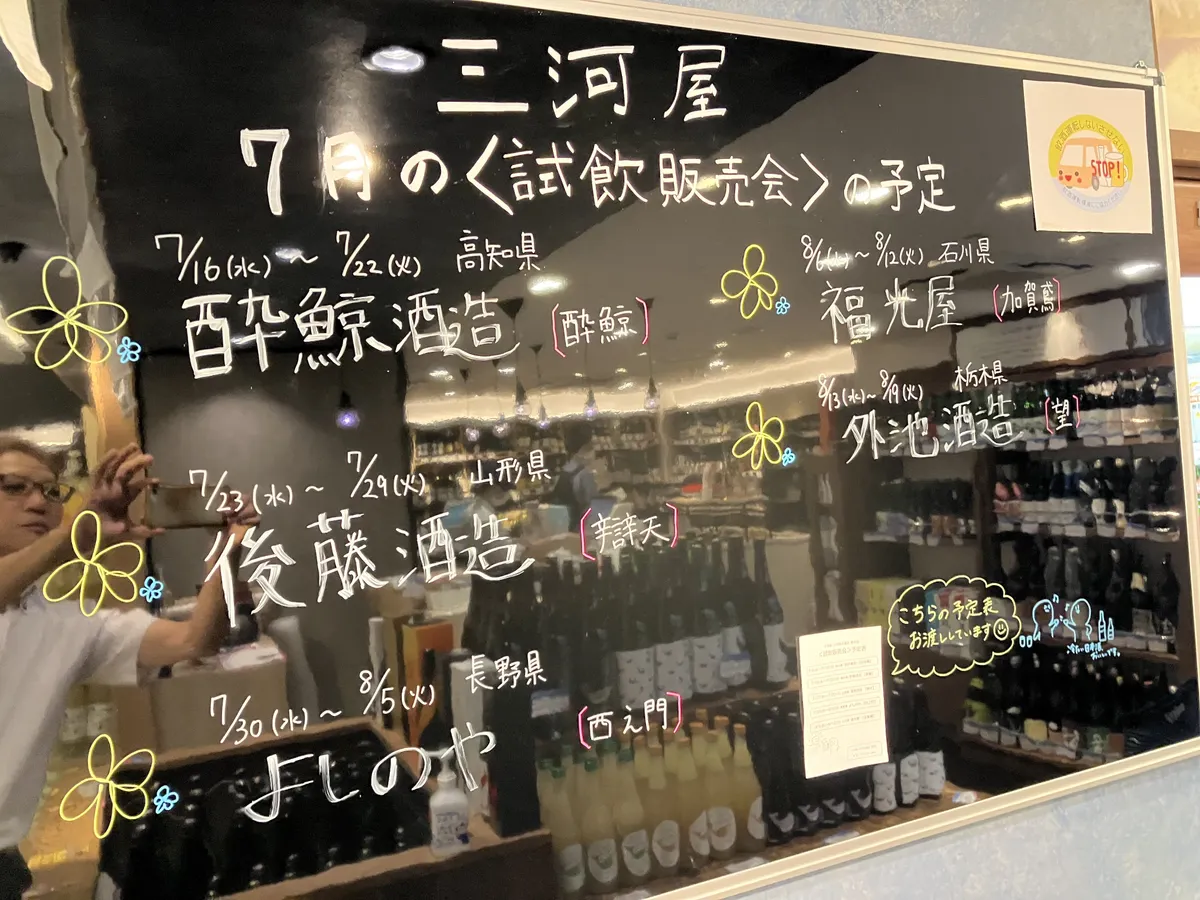 三河屋
7月の〈試飲販売会〉の予定
7/16(水)～7/22(火) 高知県
酔鯨酒造 [酔鯨]
7/23(水)～7/29(火) 山形県
後藤酒造 [辯天]
7/30(水)～8/5(火) 長野県
よしのや [西之門]
8/6(水)～8/12(火) 石川県
福光屋 [加賀鳶]
8/13(水)～8/19(火) 栃木県
外池酒造 [望]
こちらの予定表
お渡ししています
STOP!
飲酒運転しないさせない